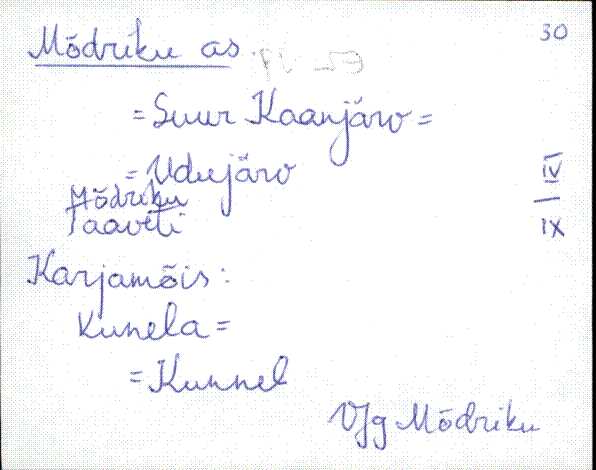 Mõdriku as.
30
= Suur Kaanjärv =
= Udujärv
IV
Mõdriku
Paaveti
IX
Karjamõis:
Kunela =
= Kunnel
VJg Mõdriku